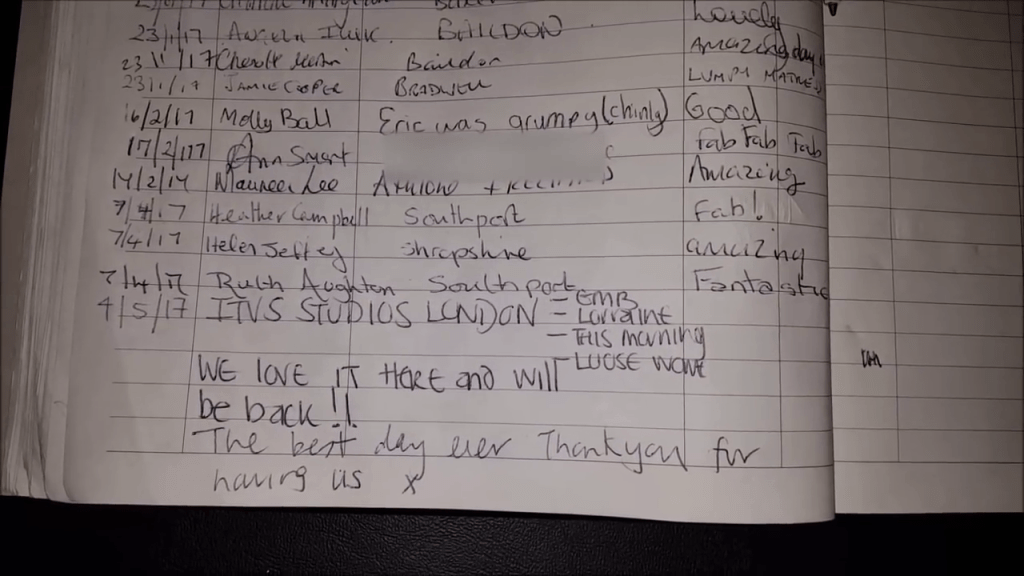 Lovely
23/1/17 BAILDON
Amazing day!
23/1/17 Baildon
23/1/17 JAMIE COOPER BRADWELL LUMPY
16/2/17 Molly Ball Eric was grumpy (chinly) Good
17/2/17 Ann Smart Fab Fab Fab
14/2/17 Maureen Lee Amazing
7/4/17 Heather Campbell Southport Fab!
7/4/17 Helen Jeffrey Shropshire amazing
7/4/17 Ruth Aughton Southport Fantastic
4/5/17 ITVS STUDIOS LONDON = GMB
= Lorraine
- THIS morning
- LOOSE WOME
WE LOVE IT HERE and Will
be back!!
The best day ever Thankyou for
having us x